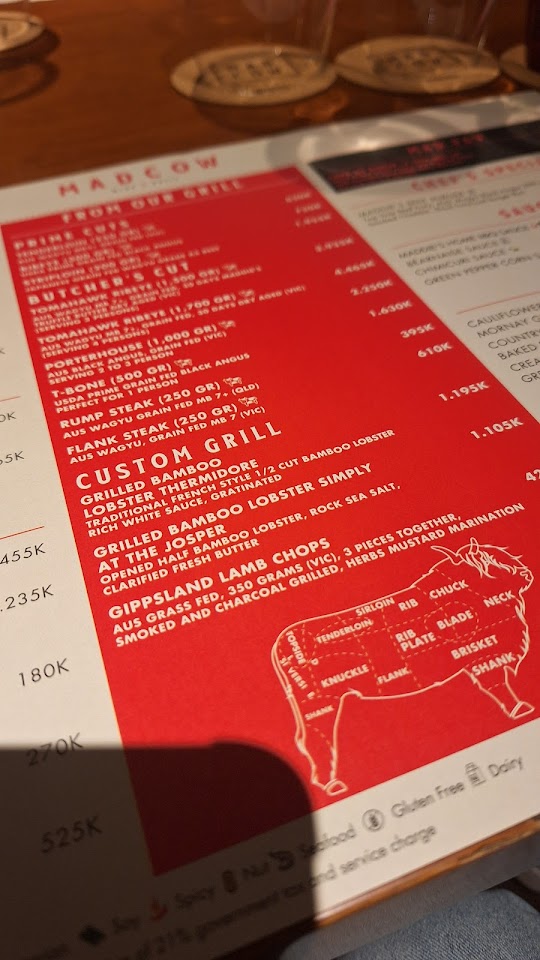 MADCOW
FROM OUR GRILL
PRIME CUTS
BUTCHER'S CUT
TOMAHAWK RIBEYE
(SERVING
TOMAHAWK RIBEYE (1,700 GR)
AUS WAGYU GRAIN FED, 30 DAYS DRY AGED (VIC)
PORTERHOUSE (1,000 GR)
AUS BLACK ANGUS, GRAIN FED (VIC)
SERVING 2 TO 3 PERSON
T-BONE (500 GR)
USDA PRIME GRAIN FED BLACK ANGUS
PERFECT FOR 1 PERSON
RUMP STEAK (250 GR)
AUS WAGYU GRAIN FED MB 7+ (QLD)
FLANK STEAK (250 GR)
AUS WAGYU, GRAIN FED MB 7 (VIC)
4.465K
2.250K
1.630K
395K
610K
CUSTOM GRILL
GRILLED BAMBOO
LOBSTER THERMIDORE
TRADITIONAL FRENCH STYLE 1/2 CUT BAMBOO LOBSTER
RICH WHITE SAUCE, GRATINATED
1.195K
GRILLED BAMBOO LOBSTER SIMPLY
AT THE JOSPER
OPENED HALF BAMBOO LOBSTER, ROCK SEA SALT,
CLARIFIED FRESH BUTTER
1.105K
GIPPSLAND LAMB CHOPS
AUS GRASS FED, 350 GRAMS (VIC), 3 PIECES TOGETHER,
SMOKED AND CHARCOAL GRILLED, HERBS MUSTARD MARINATION
42
SIRLOIN
RIB
CHUCK
NECK
TENDERLOIN
TOPSIDE
RIB
PLATE
BLADE
BRISKET
KNUCKLE
FLANK
SHANK
SHANK
CHEF'S SPECI
MADDIE'S HOME BBQ SAUCE
BEARNAISE SAUCE
CHIMICURI SAUCE
GREEN PEPPER CORN S
CAULIFLOWER
MORNAY
COUNTR
BAKED
CREA
GR
455K
.235K
180K
270K
525K
Soy
Spicy
Nut
Seafood
Gluten Free
Dairy
of 21% government tax and service charge